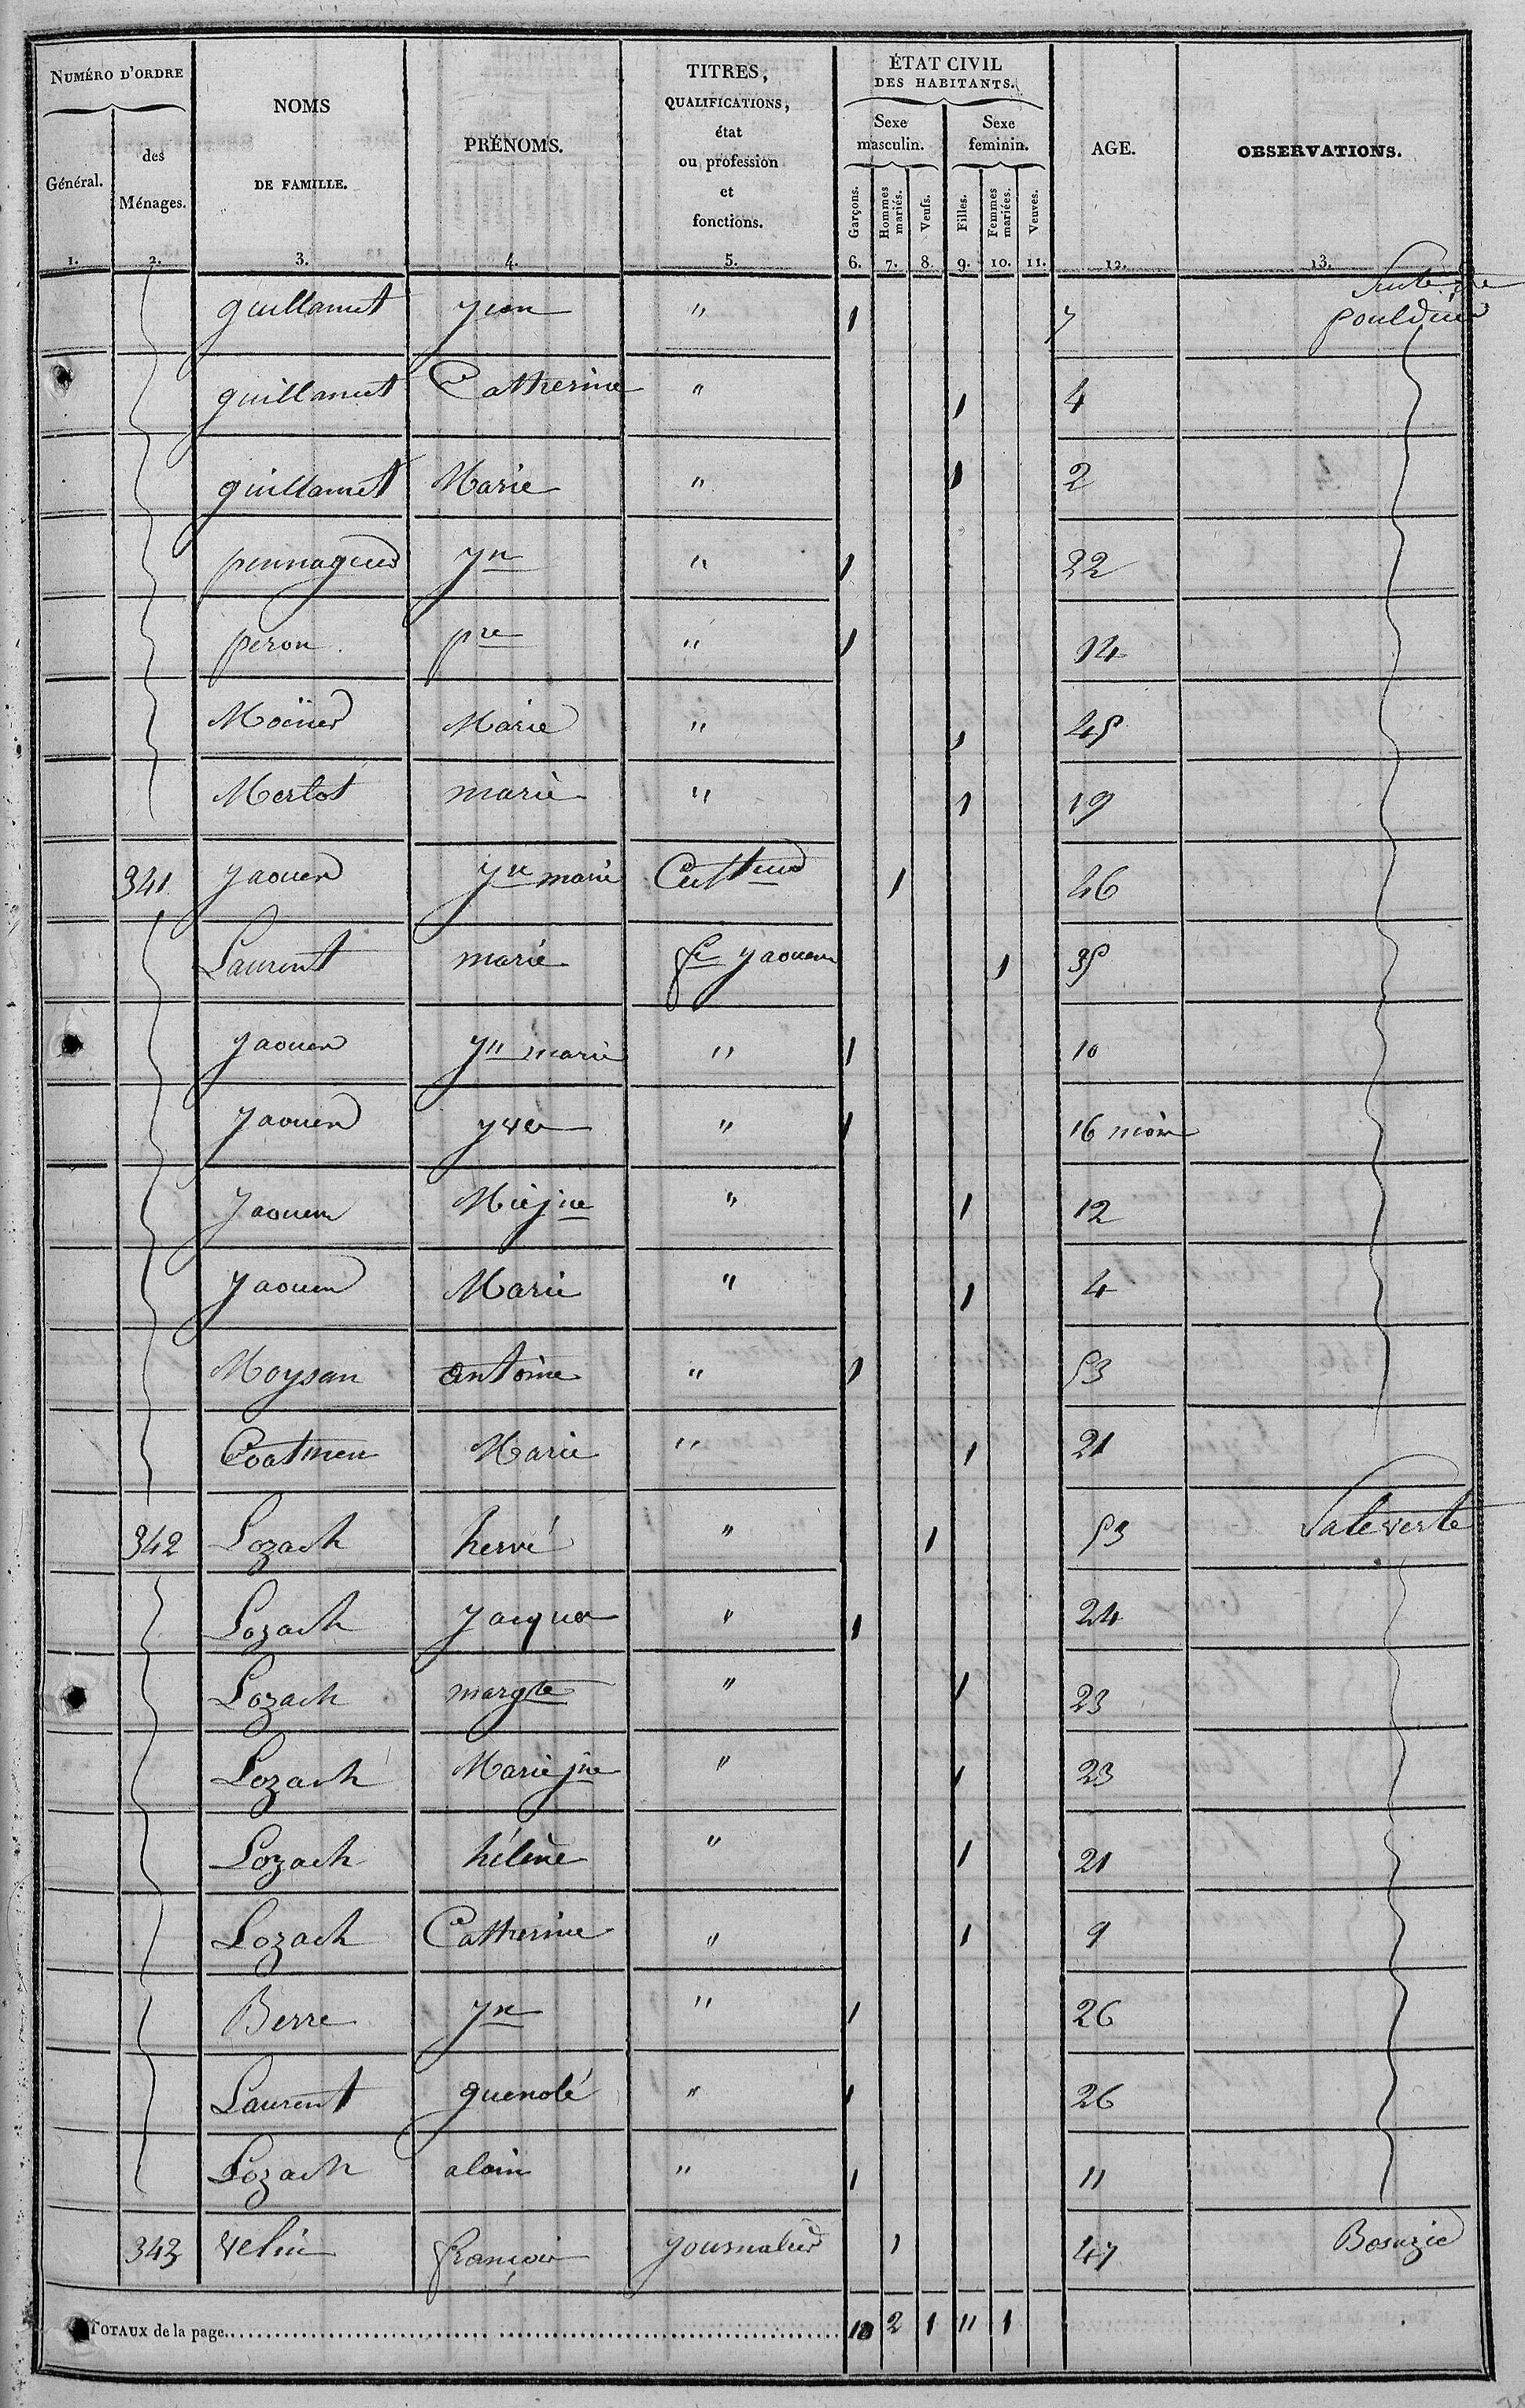 NUMÉRO D'ORDRE
Général.
des Ménages.
NOMS DE FAMILLE.
PRÉNOMS.
TITRES, QUALIFICATIONS, état ou profession et fonctions.
ÉTAT CIVIL DES HABITANTS.
Sexe masculin.
Sexe feminin.
Garçons.
Hommes mariés.
Veufs.
Filles.
Femmes mariées.
Veuves.
AGE.
OBSERVATIONS.
1. 2. 3. 4. 5. 6. 7. 8. 9. 10. 11. 12. 13.
guillamet yven " 1 7 Suite de pouldu
guillamet Catherine " 1 4
guillamet Marie " 1 2
yn " 1 22
peron pre " 1 14
Marie " 1 45
Merlot marie " 1 19
341 yaouen yn marie Cultr 1 46
Laurent marie fe yaouen 1 35
yaouen yn marie " 1 10
yaouen yves " 1 16 mois
yaouen Mie jne " 1 12
yaouen Marie " 1 4
Moysan antoine " 1 53
Coatmen Marie " 1 21
342 Lozach hervé " 1 53 Saleverte
Lozach Jacques " 1 24
Lozach margte " 1 23
Lozach Marie jne " 1 23
Lozach hélène " 1 21
Lozach Catherine " 1 9
Berre yn " 1 26
Laurent guenolé " 1 26
Lozach alain " 1 11
343 velin françois journalier 1 47
TOTAUX de la page 10 2 1 11 1